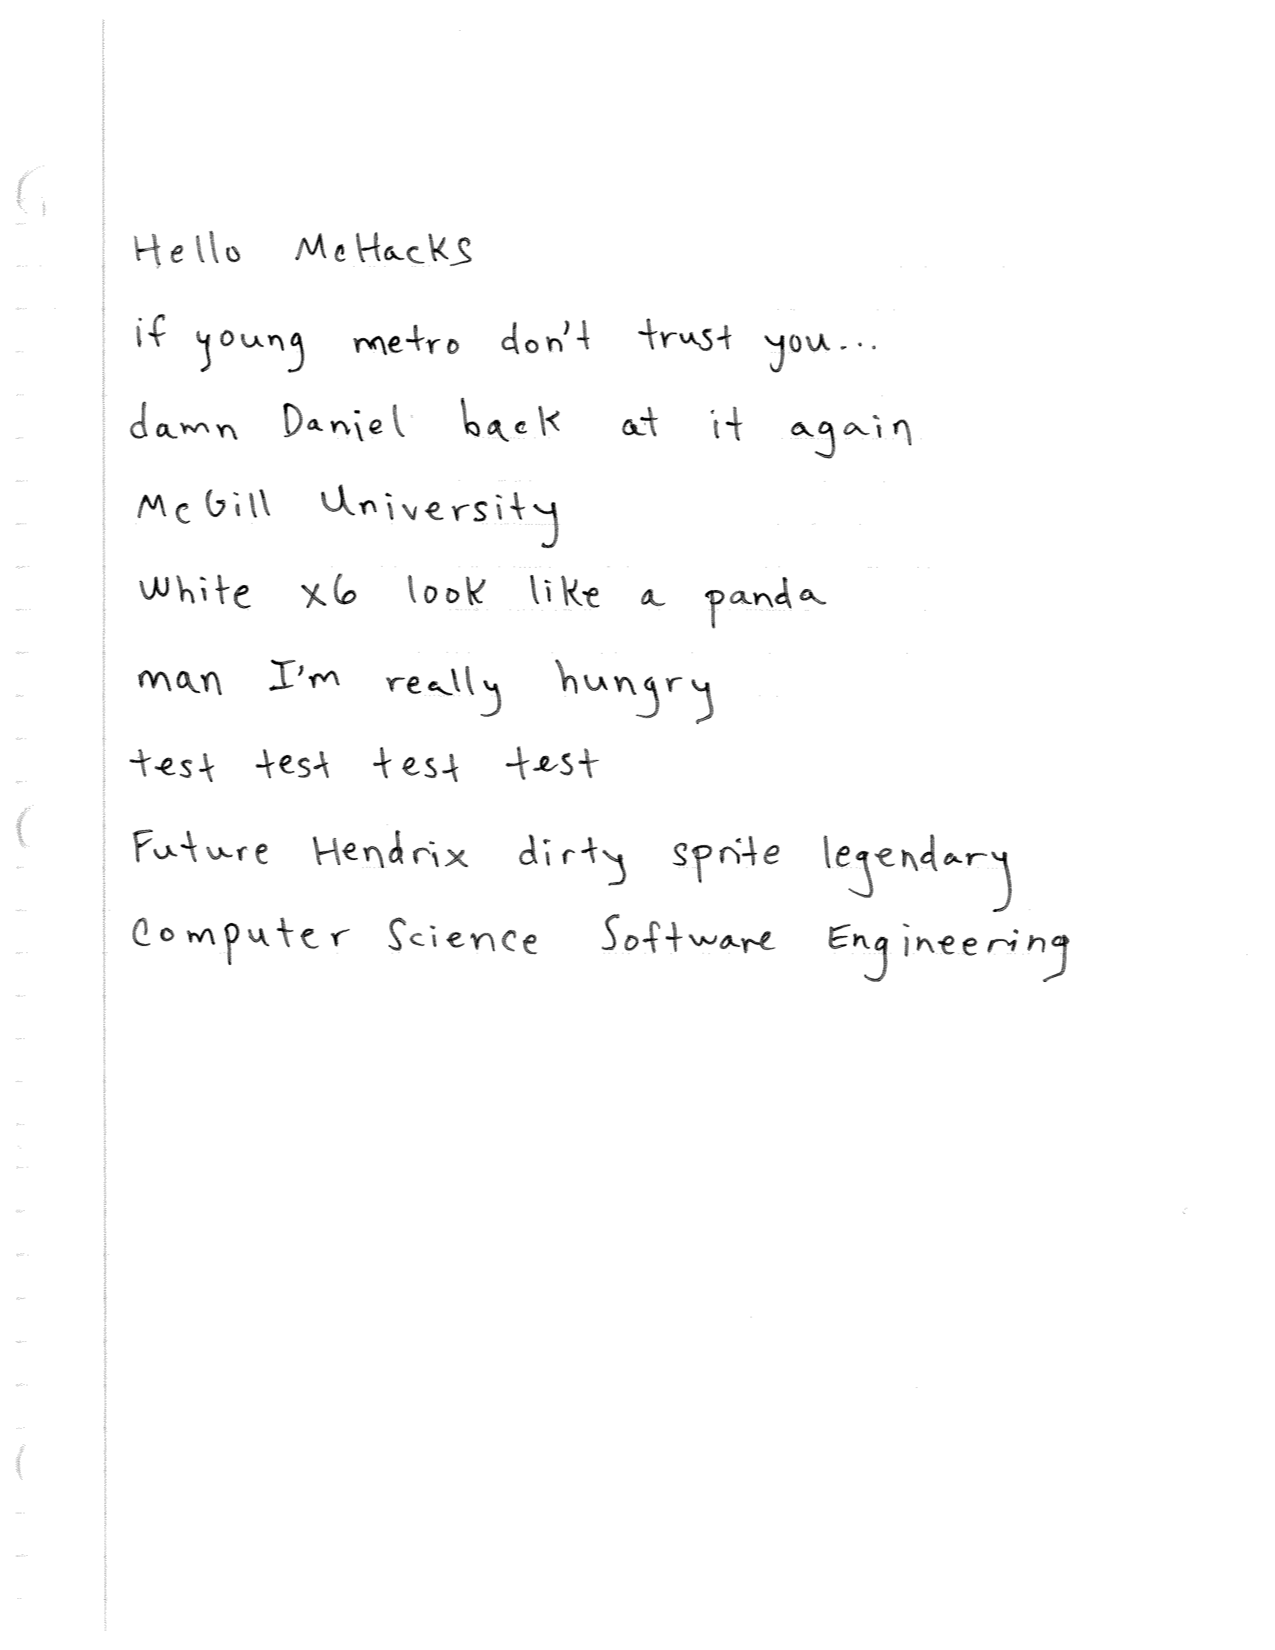 Hello McHacks
if young metro don't trust you...
damn Daniel back at it again
McGill University
White x6 look like a panda
man I'm really hungry
test test test test
Future Hendrix dirty sprite legendary
Computer Science Software Engineering